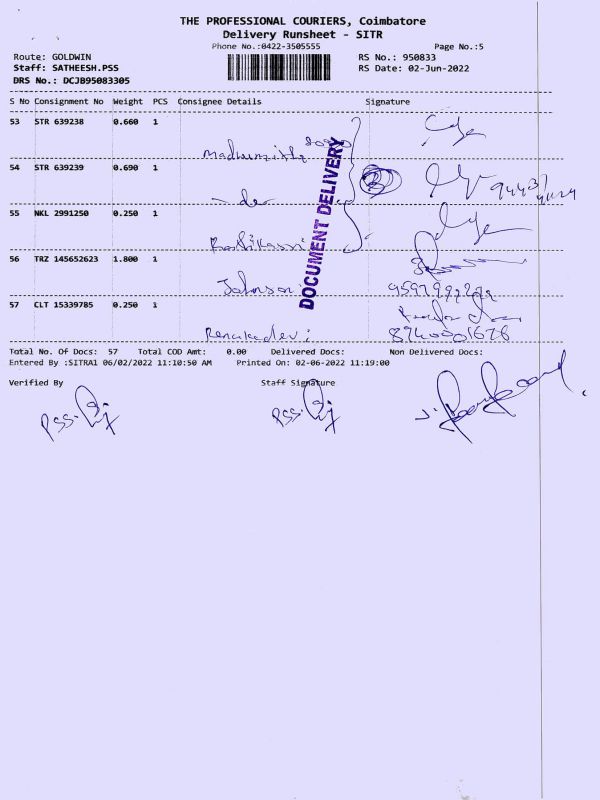 THE PROFESSIONAL COURIERS, Coimbatore
Delivery Runsheet - SITR
Phone No.:0422-3505555 Page No.:5
Route: GOLDWIN RS No.: 950833
Staff: SATHEESH.PSS RS Date: 02-Jun-2022
DRS No.: DCJB95083305
S No Consignment No Weight PCS Consignee Details Signature
53 STR 639238 0.660 1
54 STR 639239 0.690 1
55 NKL 2991250 0.250 1
56 TRZ 145652623 1.800 1
Johnson
57 CLT 15339785 0.250 1
Renukadevi
DOCUMENT DELIVERY
Total No. Of Docs: 57 Total COD Amt: 0.00 Delivered Docs: Non Delivered Docs:
Entered By :SITRA1 06/02/2022 11:10:50 AM Printed On: 02-06-2022 11:19:00
Verified By Staff Signature